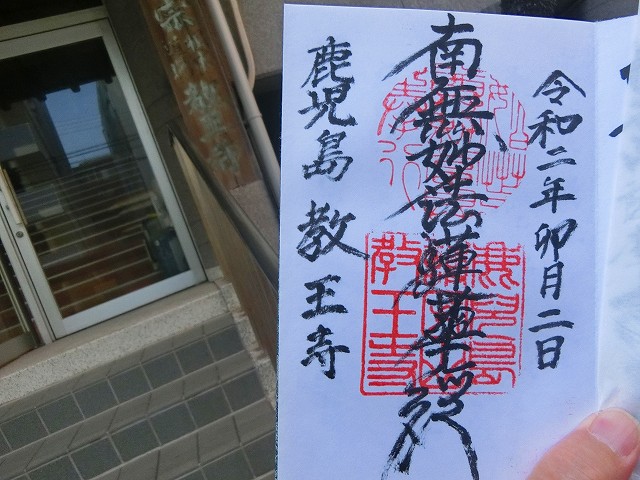 令和二年卯月二日
南無妙法蓮華経
鹿児島 教王寺
鹿児島
教王寺